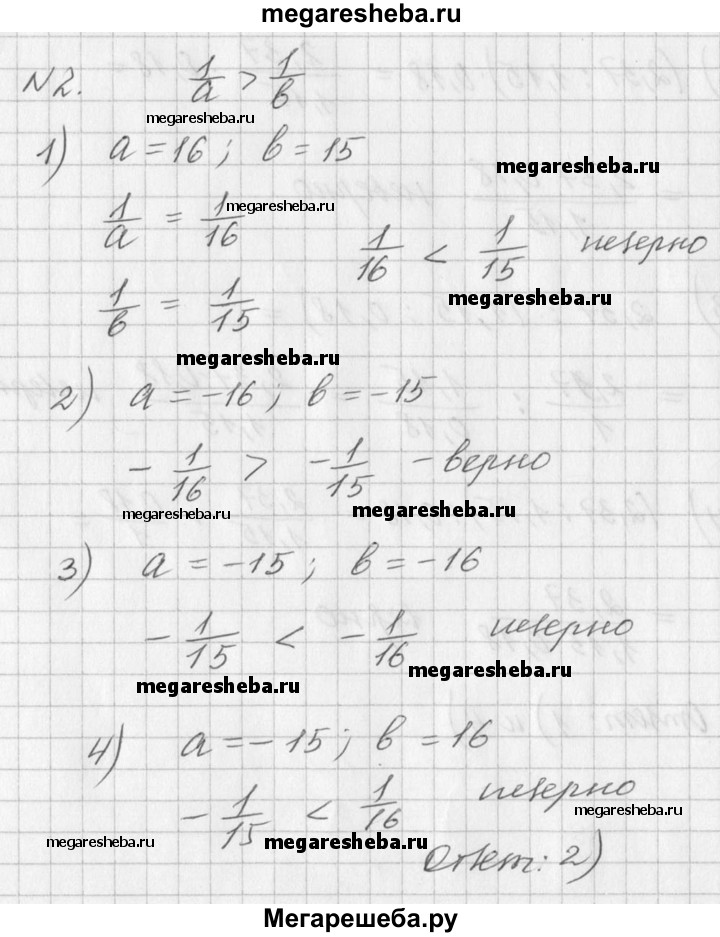 megaresheba.ru
N2. 1/a > 1/b
megaresheba.ru
1) a = 16; b = 15
megaresheba.ru
1/a = 1/16
megaresheba.ru
1/16 < 1/15 неверно
megaresheba.ru
1/b = 1/15
megaresheba.ru
2) a = -16; b = -15
- 1/16 > - 1/15 - верно
megaresheba.ru
megaresheba.ru
3) a = -15; b = -16
- 1/15 < - 1/16 неверно
megaresheba.ru
megaresheba.ru
4) a = -15; b = 16
- 1/15 < 1/16 неверно
megaresheba.ru
megaresheba.ru
megaresheba.ru
Ответ: 2)
Мегарешеба.ру